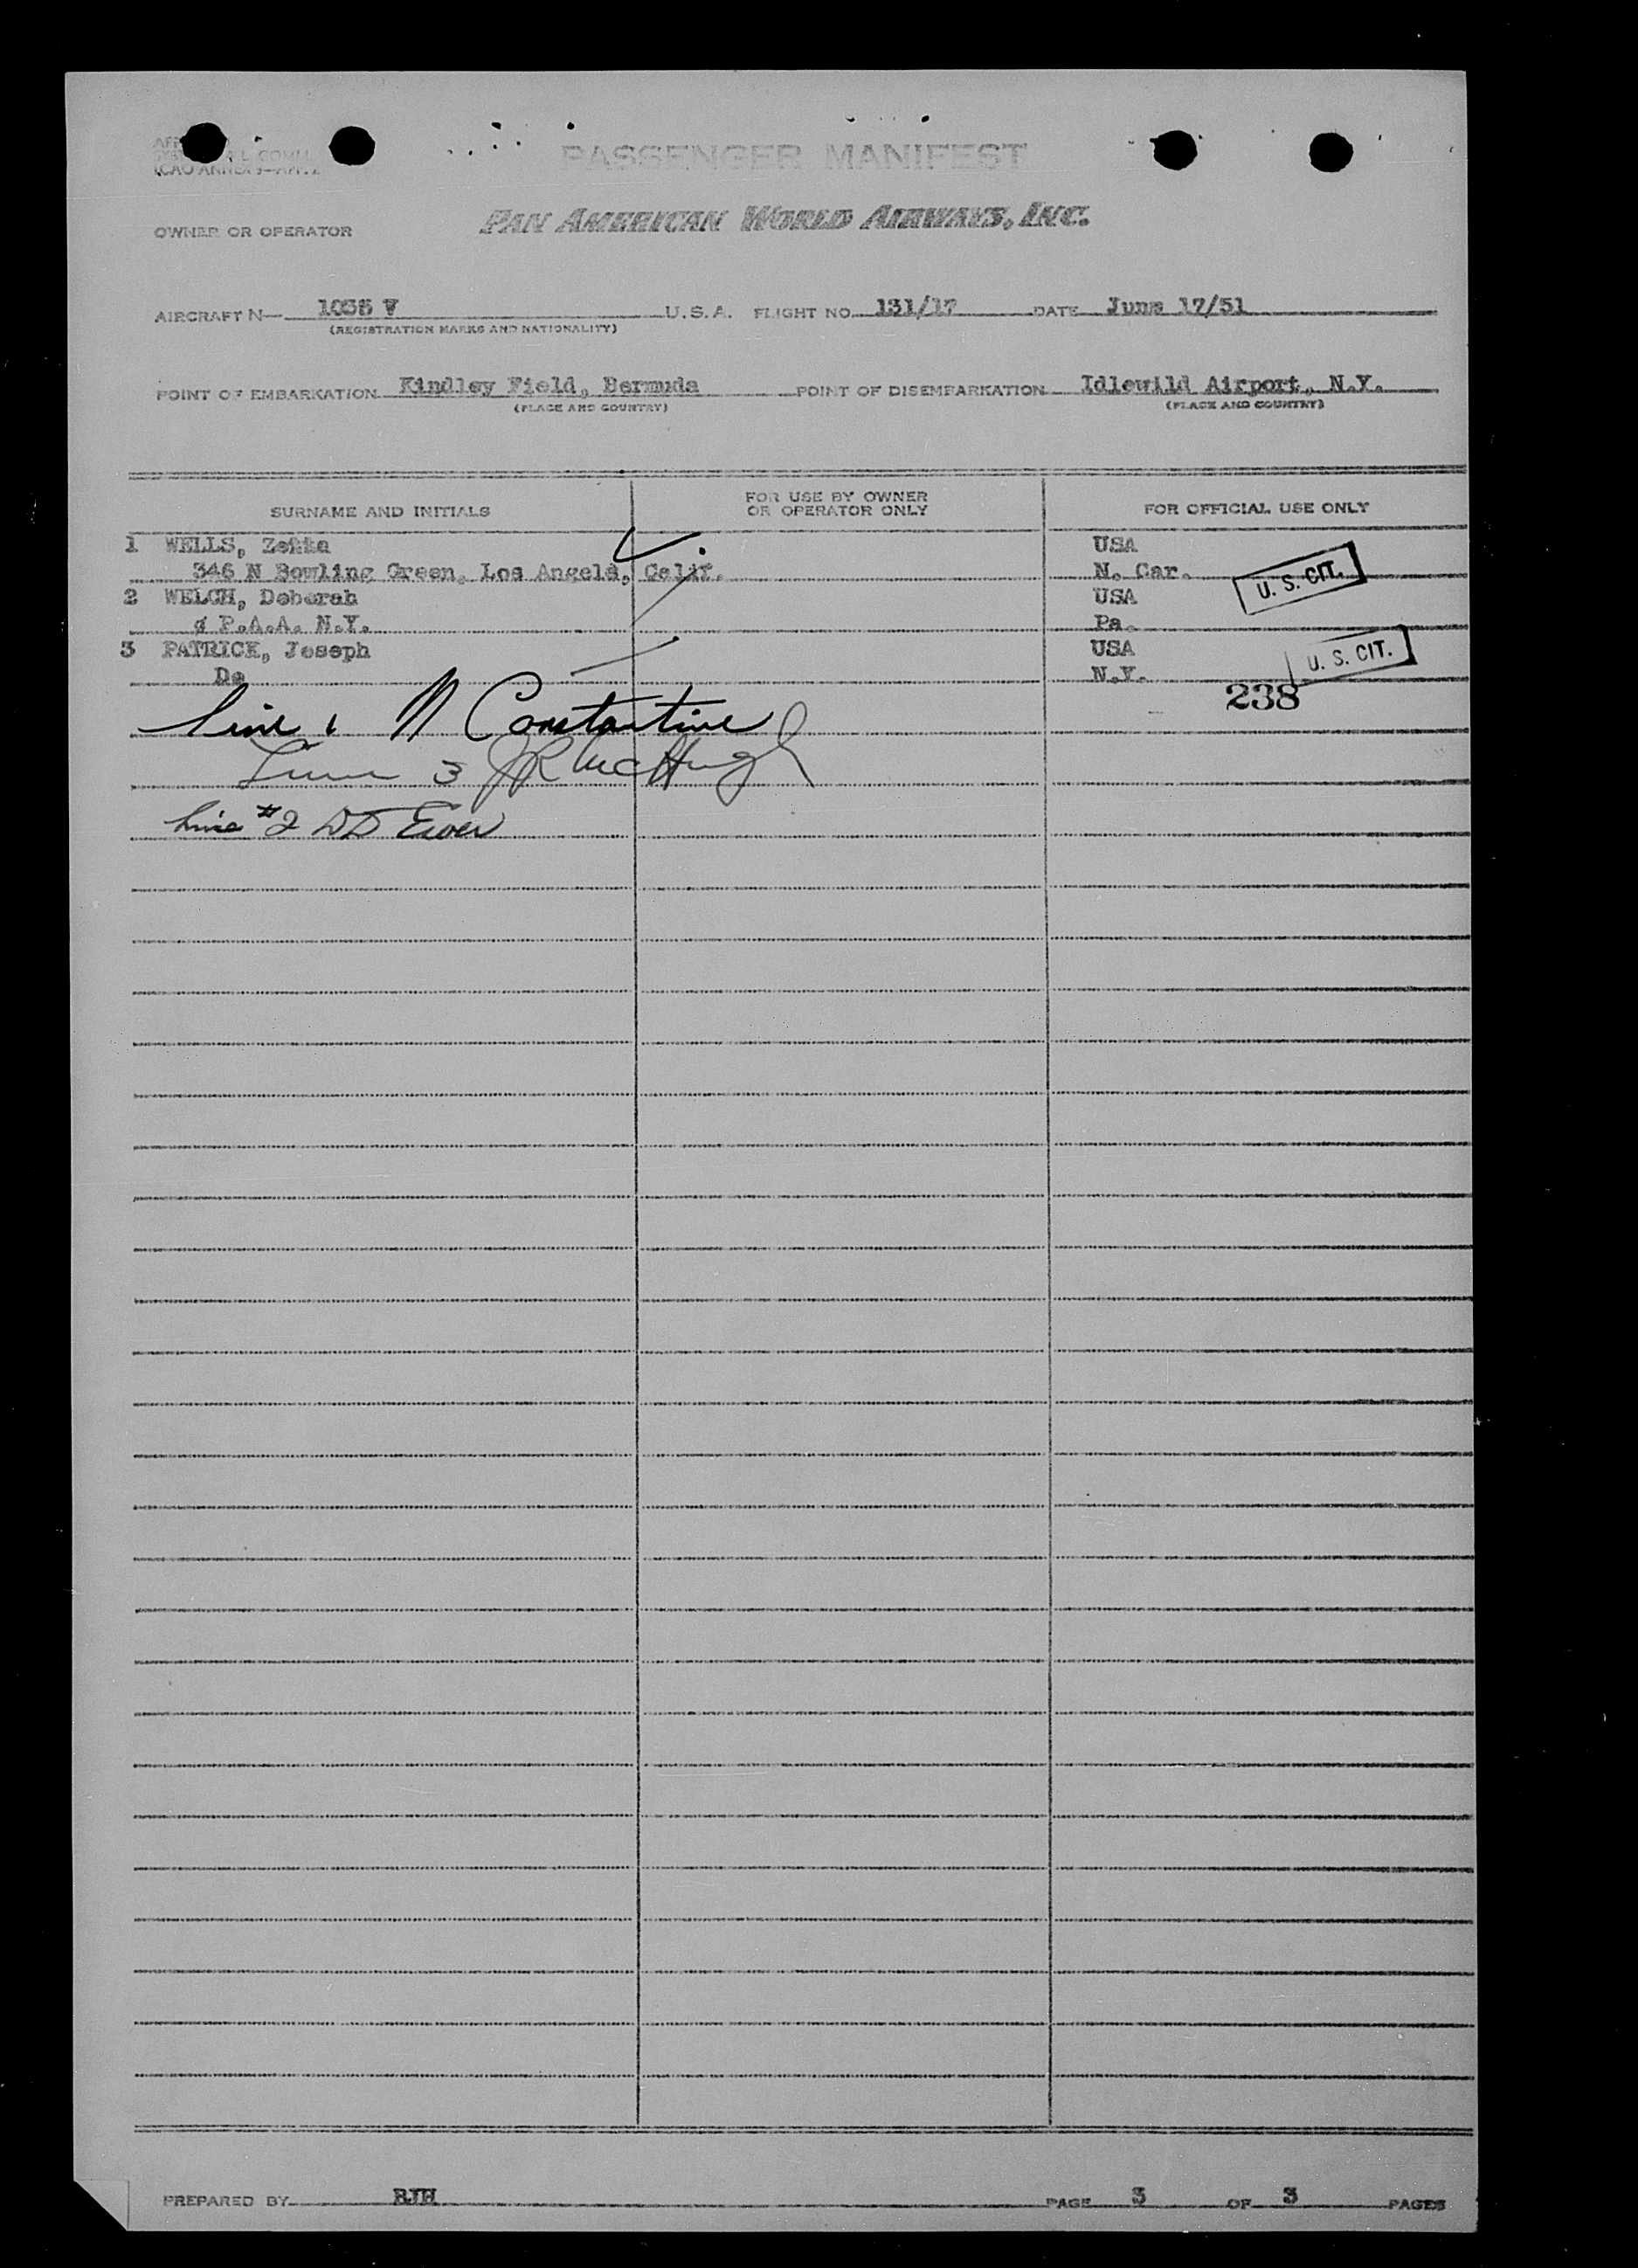 PASSENGER MANIFEST
OWNER OR OPERATOR PAN AMERICAN WORLD AIRWAYS, INC.
AIRCRAFT N— 1035 V U.S.A. FLIGHT NO. 131/17 DATE June 17/51
(REGISTRATION MARKS AND NATIONALITY)
POINT OF EMBARKATION Kindley Field, Bermuda POINT OF DISEMBARKATION Idlewild Airport, N.Y.
(PLACE AND COUNTRY) (PLACE AND COUNTRY)
SURNAME AND INITIALS FOR USE BY OWNER OR OPERATOR ONLY FOR OFFICIAL USE ONLY
1 WELLS, USA
346 N Bowling Green, Los Angels, Calif. N. Car. U. S. CIT.
2 WELCH, Deborah USA
P.A.A. N.Y. Pa.
3 PATRICK, Joseph USA
Do N.Y. U. S. CIT.
238
Line 1 N Constantine
Line 3 JR McHugh
Line #2 DD
PREPARED BY RJH PAGE 3 OF 3 PAGES